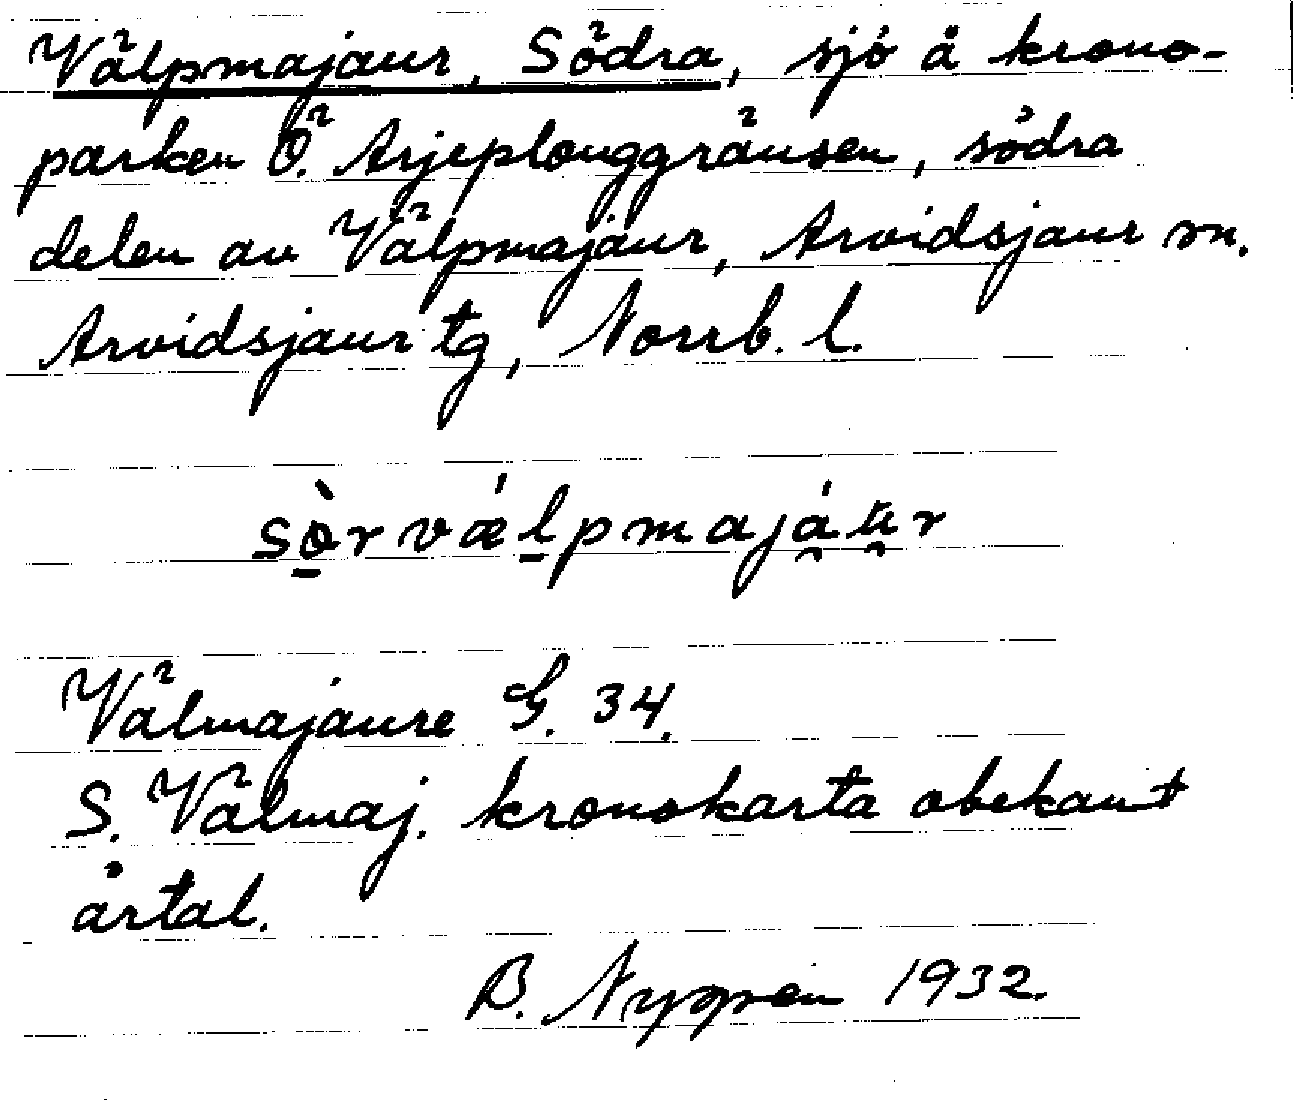 Välpmajaur, Södra, sjö å krono-
parken Ö. Arjeplouggränsen, södra
delen av Välpmajaur, Arvidsjaur sn.
Arvidsjaur tg, Norrb. l.
sö̀rvǽlpmajáu̯r
Välmajaure G. 34.
S. Välmaj. kronokarta obekant
årtal.
B. Nygren 1932.